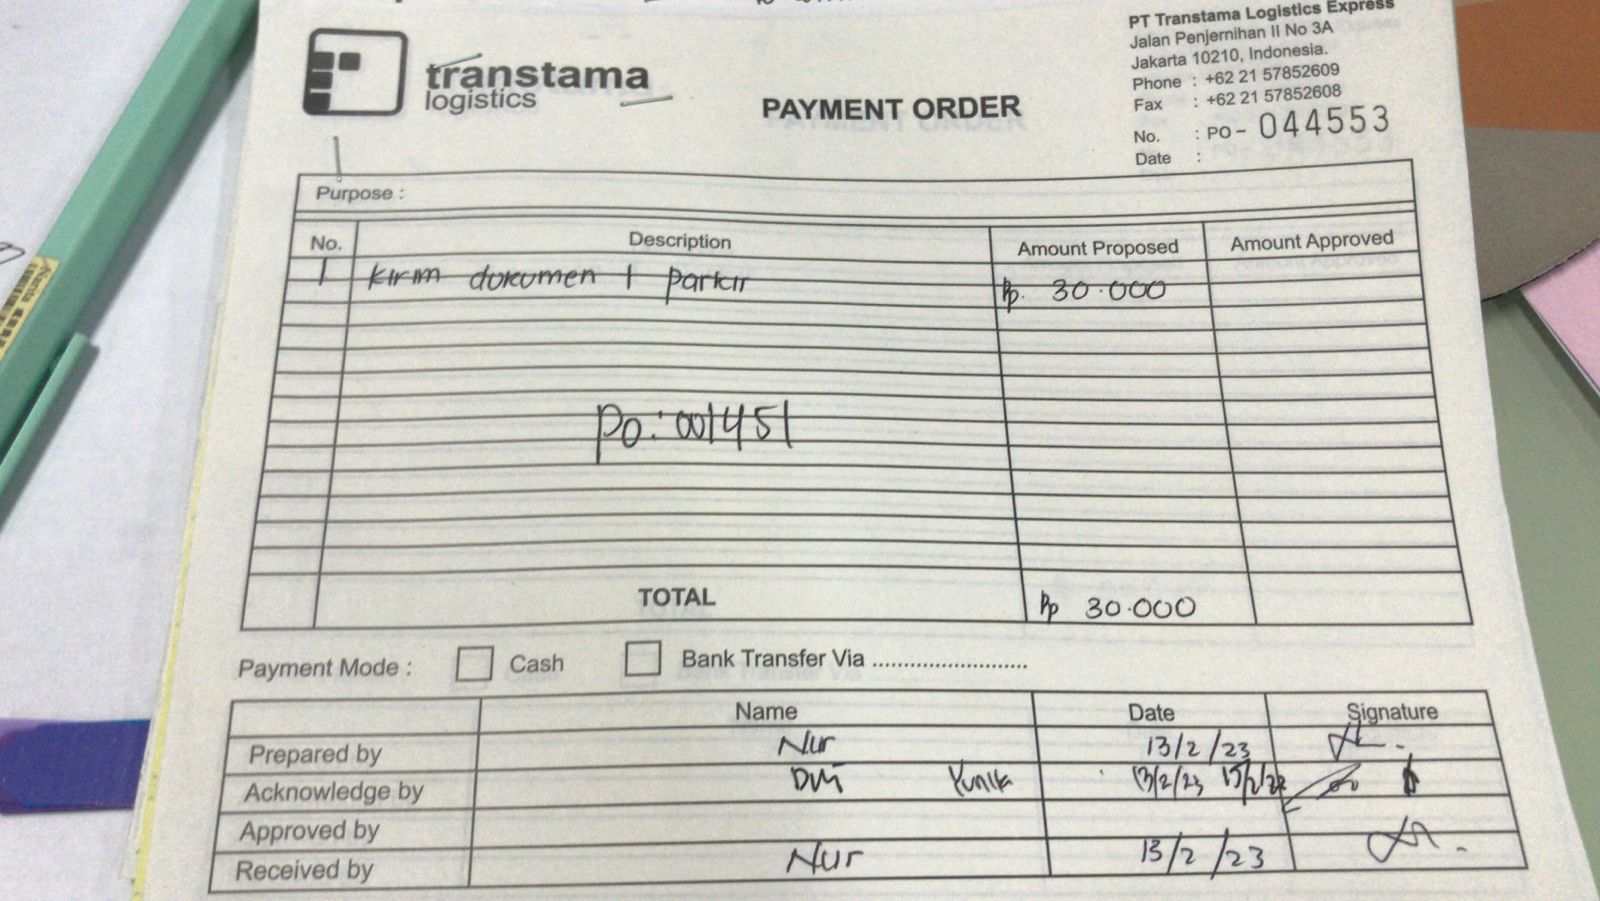 transtama
logistics
PAYMENT ORDER
PT Transtama Logistics Express
Jalan Penjernihan II No 3A
Jakarta 10210, Indonesia.
Phone : +62 21 57852609
Fax : +62 21 57852608
No. : PO- 044553
Date :
Purpose :
No. Description Amount Proposed Amount Approved
1 kirim dokumen + parkir Rp. 30.000
PO: 001451
TOTAL Rp 30.000
Payment Mode : Cash Bank Transfer Via ..........................
Name Date Signature
Prepared by Nur 13/2/23
Acknowledge by Yunita 13/2/23
Approved by
Received by Nur 13/2/23